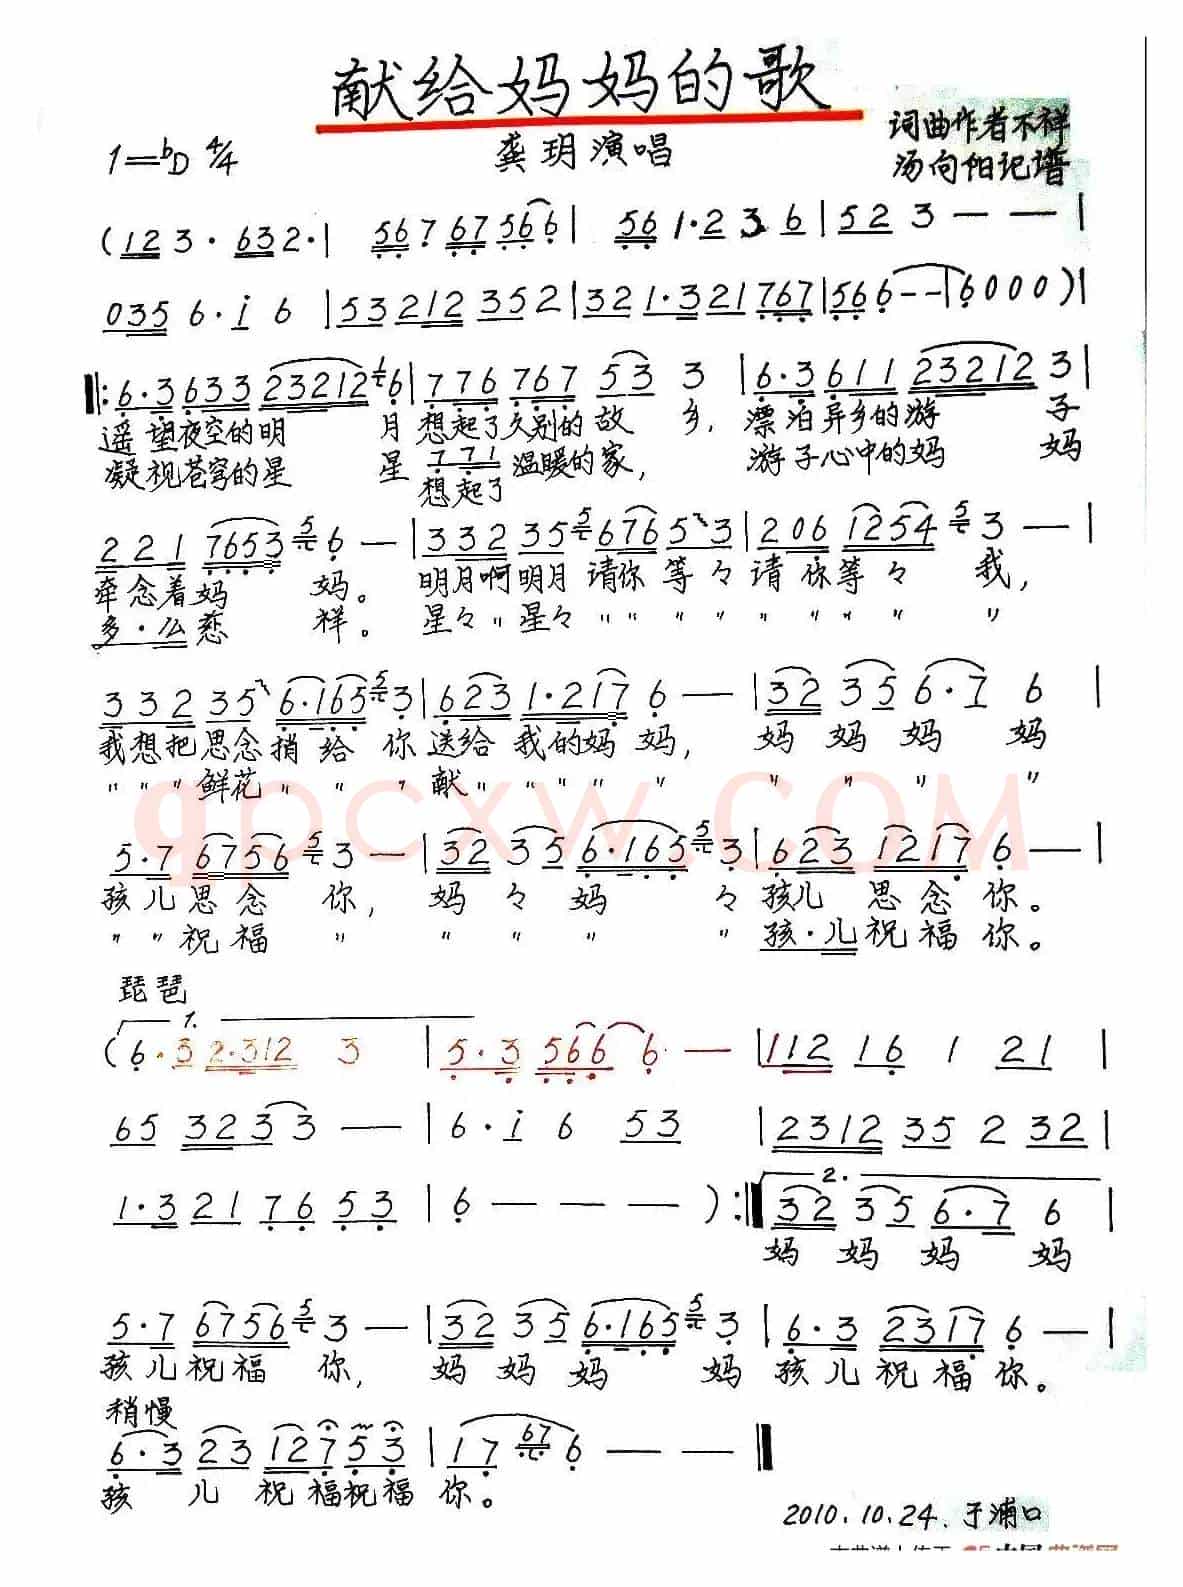 献给妈妈的歌
词曲作者不祥
1=ᵇD 4/4
龚玥演唱
汤向阳记谱
(123·632·| 567 67 566| 561·23 6|523--|
035 6·i 6|53212352|321·321767|566--|6000)|
‖:6·3633232126|776767 53 3|6·3611232123|
遥望夜空的明 月 想起了久别的故 乡,漂泊异乡的游 子
凝视苍穹的星 星 771 温暖的家, 游子心中的妈 妈
想起了
2217653 5 6-|33235 5 67653|2061254 5 3-|
牵念着妈 妈。 明月啊明月请你等々请你等々 我,
多·么慈 祥。 星々〃星々〃〃〃〃〃〃〃〃 〃
33235 6·165 5 3|6231·2176-|32 35 6·7 6|
我想把思念捎给 你送给我的妈妈, 妈妈妈 妈
〃〃〃鲜花〃〃 〃献〃〃〃〃 〃 〃〃〃 〃
5·7 6756 5 3-|32 35 6·165 5 3|623 1217 6-|
孩儿思念 你, 妈々妈 々孩儿 思念你。
〃〃祝福 〃 〃〃〃 〃孩·儿祝福你。
琵琶
1.
(6·3 2·312 3|5·3 566 6-|112 16 1 21|
65 3233-|6·i 6 53|2312 35 2 32|
2.
1·3 21 76 53|6---):‖32 35 6·7 6|
妈 妈 妈 妈
5·7 6756 5 3-|32 35 6·165 5 3|6·3 2317 6-|
孩儿祝福 你, 妈妈妈 妈孩儿祝福你。
稍慢
6·3 23 127 53|17 67 6--‖
孩 儿 祝福祝福 你。
2010.10.24.于浦口
qpcxw.COM